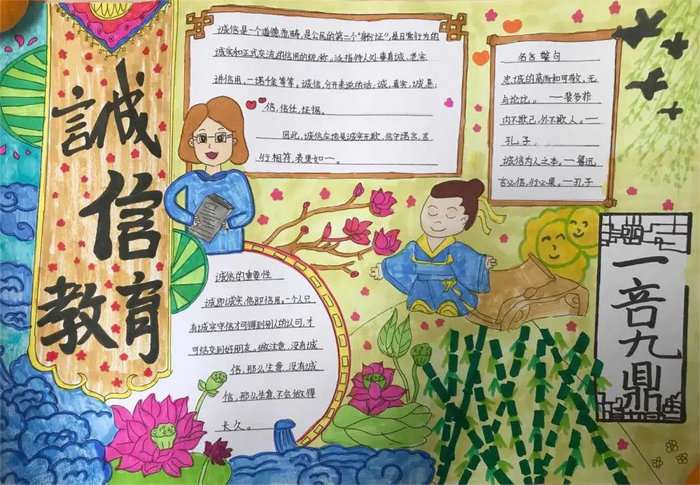 誠信教育
诚信是一个道德范畴，是公民的第二个"身份证"，是日常行为的
诚实和正式交流的信用的统称。泛指待人处事真诚、老实、
讲信用，一诺千金等等。诚信，分开来说的话：诚，真实，诚恳；
信，信任，证据。
因此，诚信应该是诚实无欺，信守诺言，言
行相符，表里如一。
名言警句
忠诚的高尚和可敬，无
与伦比。 ——裴多菲
内不欺己，外不欺人。——
孔子
诚信为人之本。——鲁迅
言必信，行必果。——孔子
诚信的重要性
诚即诚实，信即信用，一个人只
有诚实守信才可得到别人的认可，才
可结交到好朋友。做生意，没有诚
信，那么生意，没有诚
信，那么生意不会做得
长久。
一言九鼎